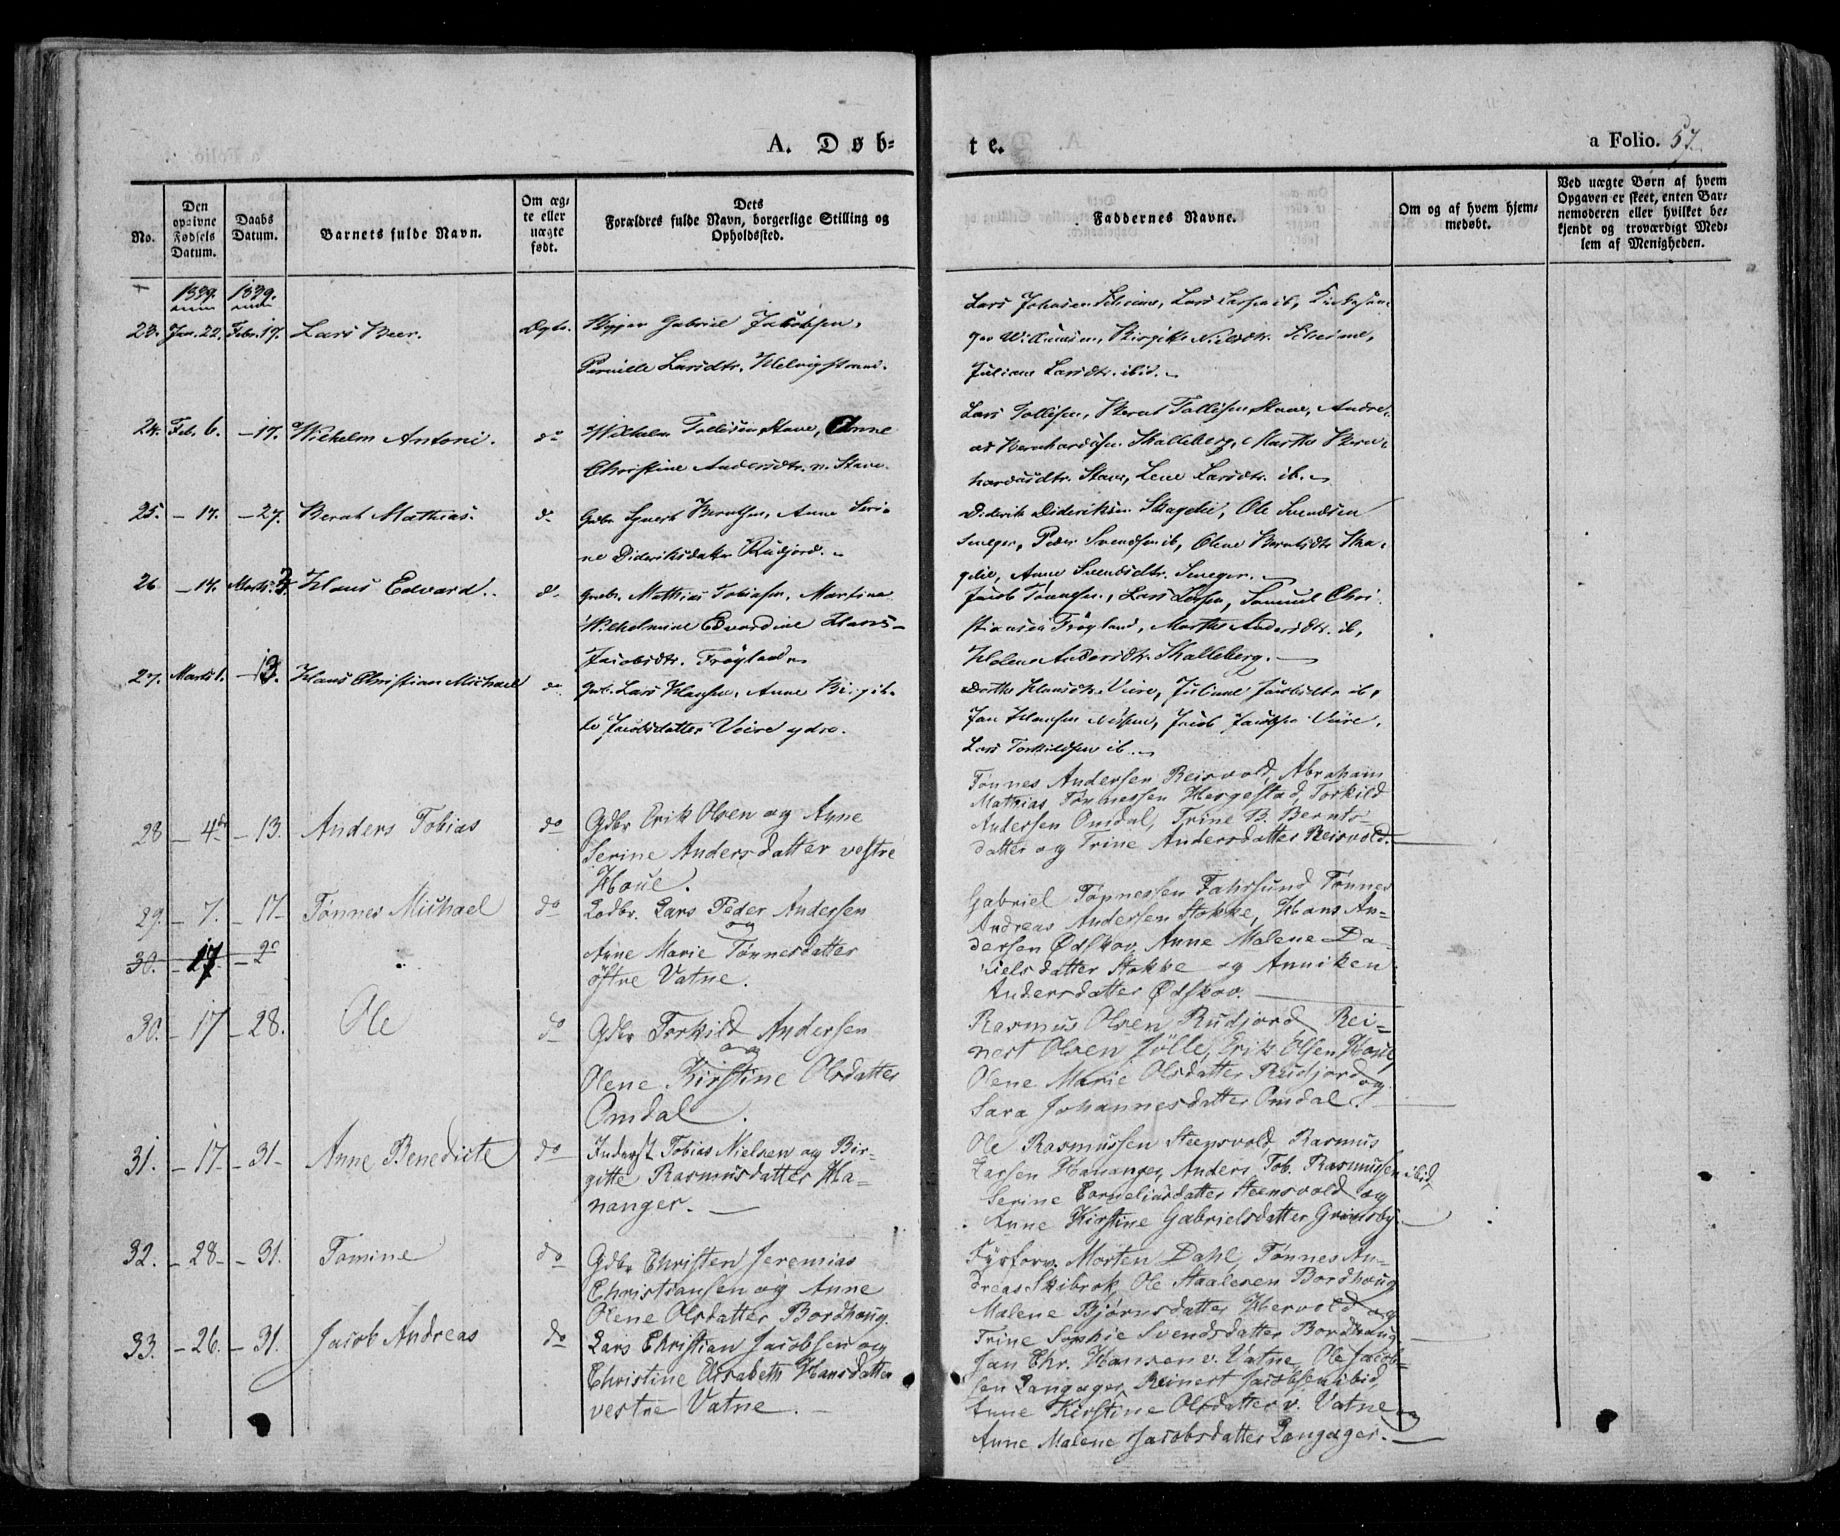 A. Døb-
te.
a Folio. 57.
No.
Den opgivne Fødsels Datum.
Daabs Datum.
Barnets fulde Navn.
Om ægte eller uægte født.
Dets Forældres fulde Navn, borgerlige Stilling og Opholdssted.
Faddernes Navne.
Om og af hvem hjemmedøbt.
Ved uægte Børn af hvem Opgaven er skeet, enten Barnemoderen eller hvilket bekjendt og troværdigt Medlem af Menigheden.
1839. 1839.
23. Jan. 22. Febr. 17. Lars Beer. Ægte. Gabriel Jakobsen,
Pernille Larsdtr. Helvigstrand.
Juliane Larsdtr. ibid.
24. Feb. 6. – 17. Wilhelm Antoni. do Wilhelm Tollisen Stave, Anne
Christine Andersdtr. Stave.
Lars Tollisen, Bernt Tollisen Stave, Andre-
as Bernhardsen Skalleberg, Marthe Bern-
hardsdtr. Stave, Lene Larsdtr. ib.
25. – 17. – 27. Bernt Mathias. do Gdbr. Syvert Berntsen, Anne Seri-
ne Dideriksdatter Rudjord.
Diderik Dideriksen Skagelie, Ole Svendsen
Peder Svendsen ib, Olene Berntsdtr. Ska-
gelie, Anne Svendsdtr.
26 – 14. Marts 3. Hans Edvard. do Gdbr. Mathias Tobiasen, Martine
Wilhelmine Edvardine Hans-
Jacobsdtr. Frøyland
Jacob Tønnesen, Lars Larsen, Samuel Chri-
stiansen Frøyland, Marthe Andersdtr. ib,
Helene Andersdtr. Skalleberg.
27. Marts 1. – 13. Hans Christian Michael do Gdbr. Lars Hansen, Anne Birgit-
te Jacobsdatter Veire ydre.
Dorthe Hansdtr. Veire, Juliane Jacobsdtr. ib,
Jan Hansen Jacob Jacobsen Veire,
Lars Torkildsen ib.
28 – 4de – 13. Anders Tobias do Gdbr Erik Olsen og Anne
Serine Andersdatter vestre
Houe.
Tønnes Andersen Reisvold, Abraham
Mathias Tønnessen Hergestad, Torkild
Andersen Omdal, Trine B. Bernts-
datter og Trine Andersdatter Reisvold.
29. – 7. – 17 – Tønnes Michael do Lodbr. Lars Peder Andersen
og
Anne Marie Tønnesdatter
østre Vatne.
Gabriel Tønnessen Fahrsund Tønnes
Andreas Andersen Stokke, Hans An-
dersen Ødskov, Anne Malene Da-
nielsdatter Stokke og Anniken
Andersdatter Ødskov.
30. – 17 – 2
30. – 17 – 28. Ole do Gdbr Torkild Andersen
og
Olene Kirstine Olsdatter
Omdal.
Rasmus Olsen Rudjord, Rei-
nert Olsen Jølle, Erik Olsen Houe,
Olene Marie Olsdatter Rudjord og
Sara Johannesdatter Omdal.
31. – 17 – 31 – Anne Benedicte do Inderst Tobias Nielsen og Bir-
gitte Rasmusdatter Ha-
nanger.
Ole Rasmussen Steensvold, Rasmus
Larsen Hananger, Anders Tob. Rasmussen ibid
Serine Corneliusdatter Steensvold og
Anne Kirstine Gabrielsdatter Grimsby.
32. – 28 – – 31. Tomine do Gdbr Christen Jeremias
Christiansen og Anne
Olene Olsdatter Bordhoug.
Fyrforv. Morten Dahl, Tønnes An-
dreas Skibrok, Ole Staalesen Bordhoug
Malene Bjørnsdatter Hervold og
Trine Sophie Svendsdatter Bordhoug
33. – 26. – 31. Jacob Andreas do Lars Christian Jacobsen og
Christine Elisabeth Hansdatter
vestre Vatne.
Jan Chr. Hansen v. Vatne, Ole Jacob-
sen Langager, Reinert Jacobsen ibid,
Anne Kirstine Olsdatter v. Vatne og
Anne Malene Jacobsdatter Langager.